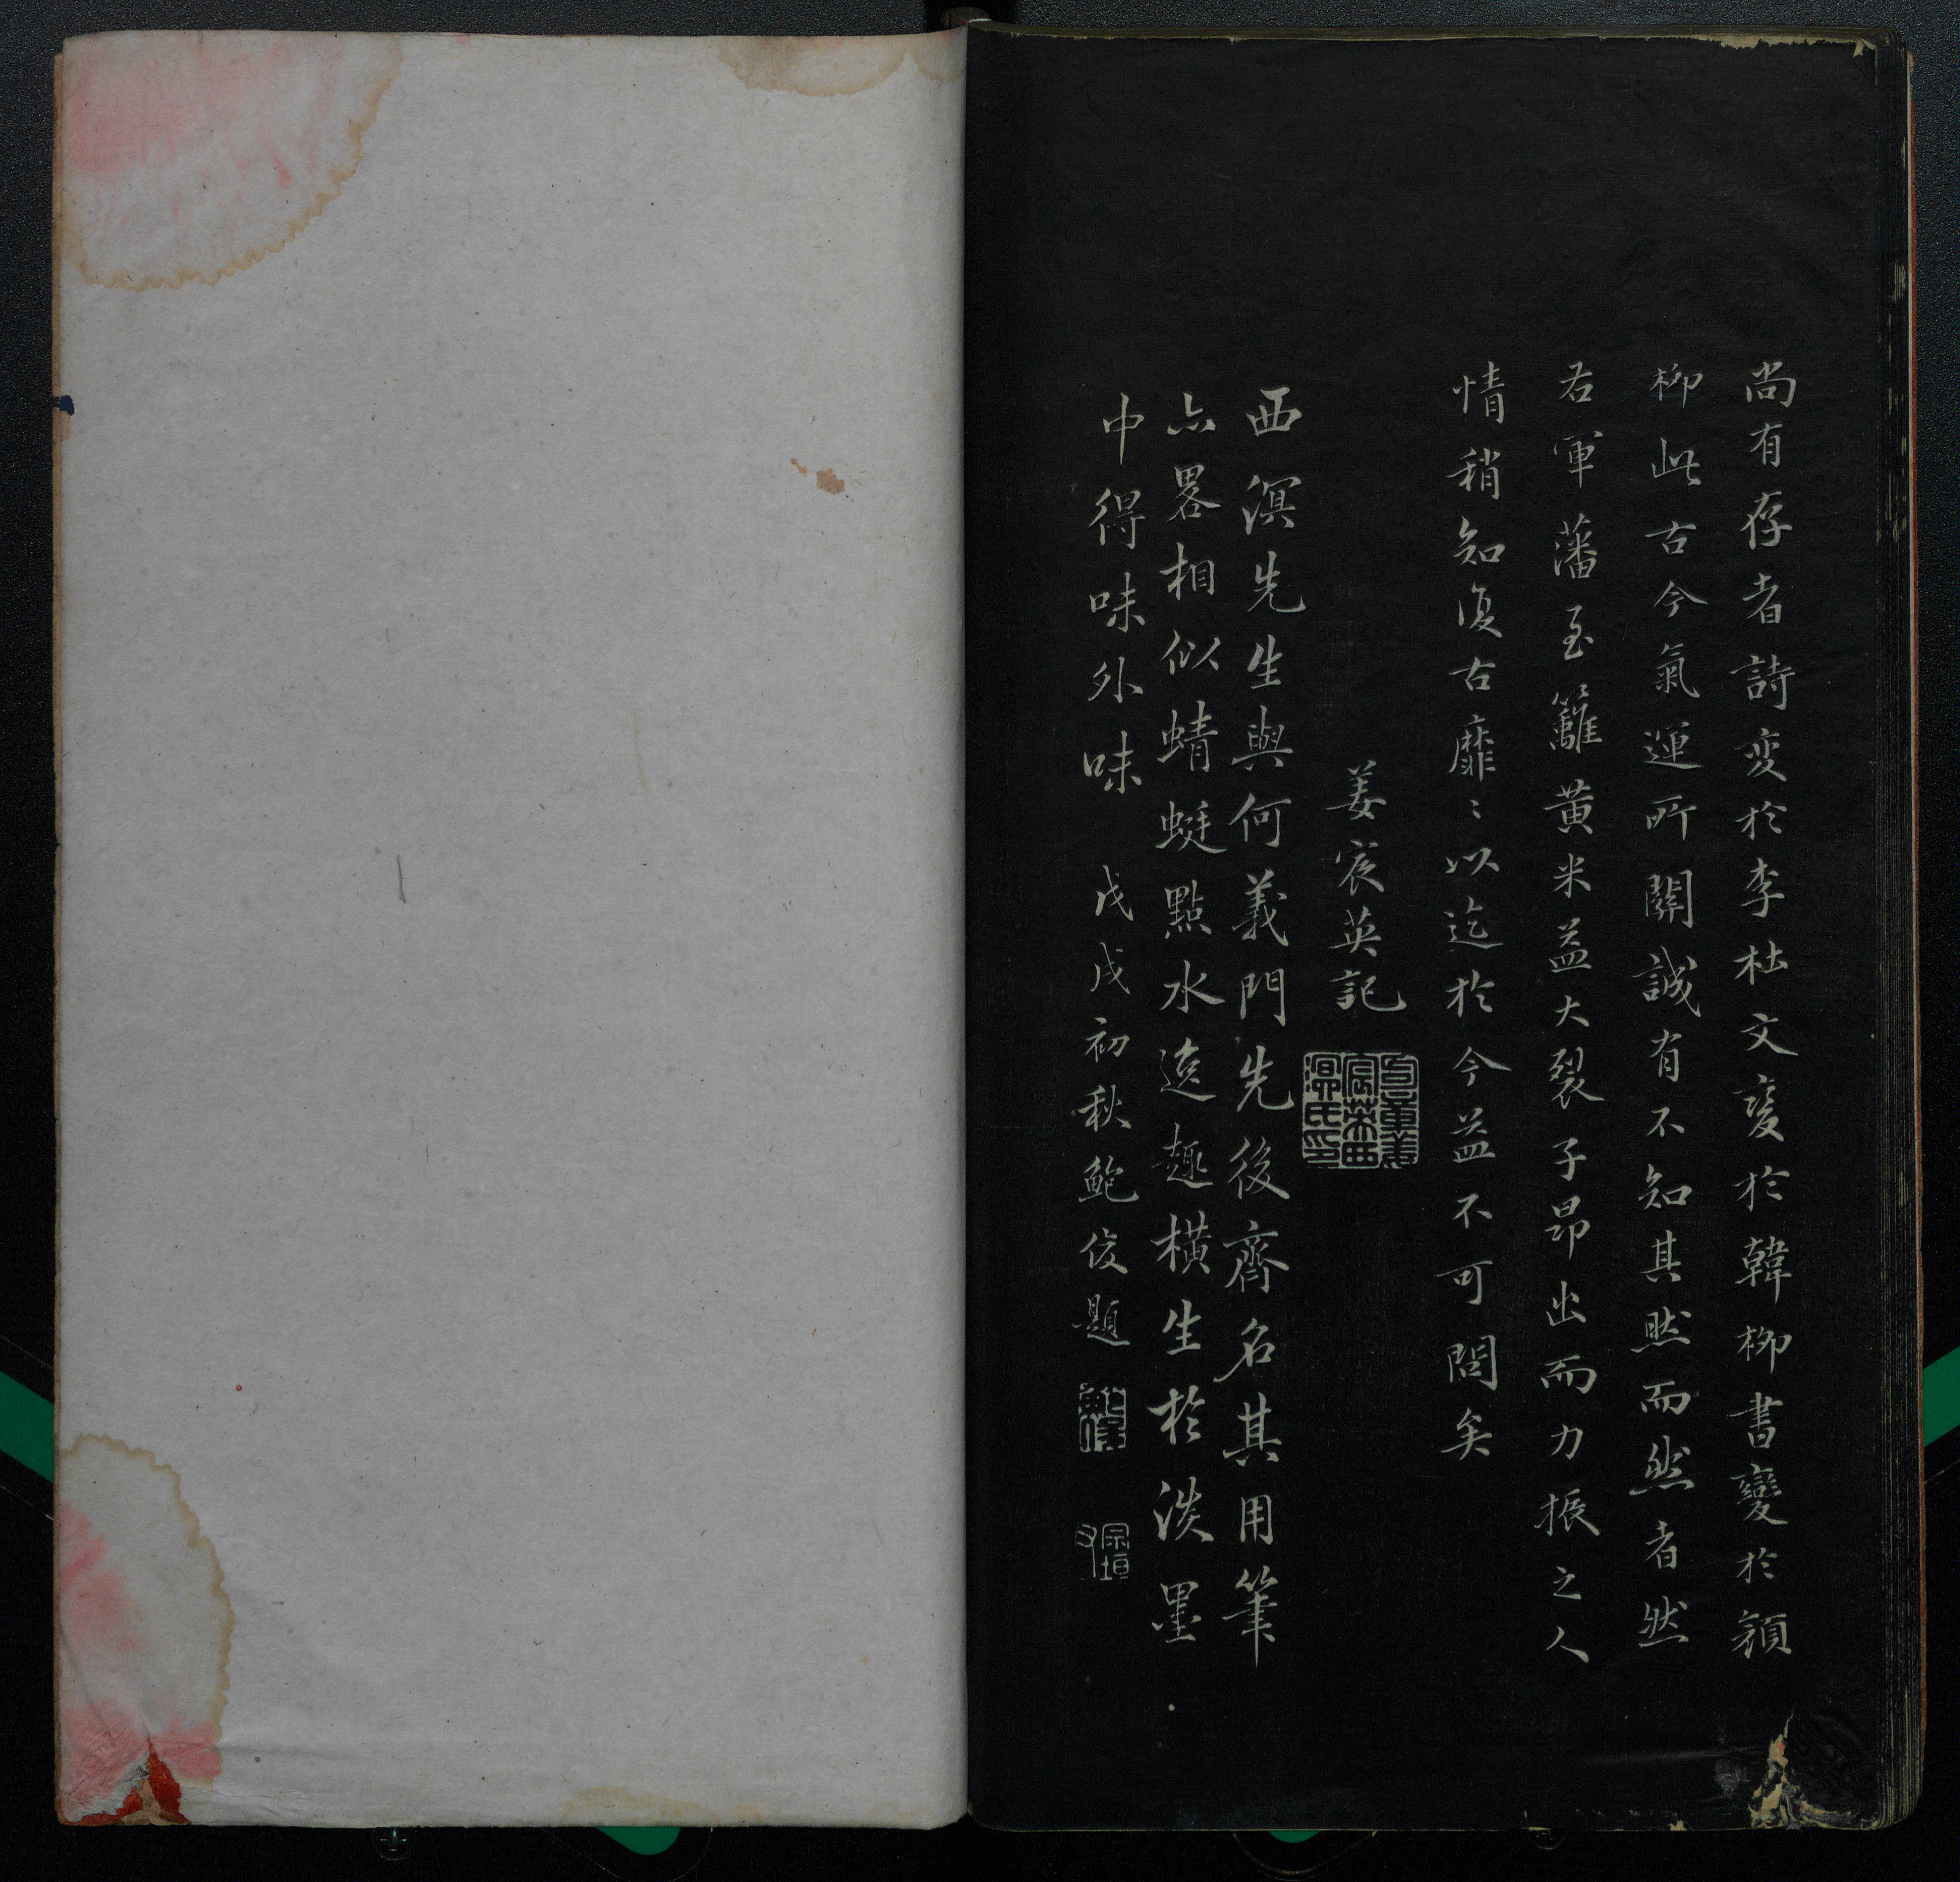 尚有存者詩变於李杜文変於韓柳書變於顔
柳此古今氣運所關誠有不知其然而然者然
右軍藩至籬黄米益大裂子昂出而力振之人
情稍知復古靡〻以迄於今益不可問矣
姜宸英記
西溟先生與何義門先後齊名其用筆
亦畧相似蜻蜓點水遠趣橫生於淡墨
中得味外味 戊戌初秋鮑俊題